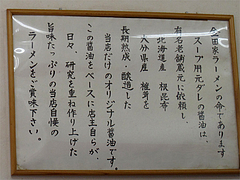 会田家ラーメンの命であります
スープ用元ダレの醤油は、
有名老舗蔵元に依頼し、
北海道産 根昆布
大分県産 椎茸を
長期熟成、醸造した
当店だけのオリジナル醤油です。
この醤油をベースに店主自らが、
日々、研究を重ね作り上げた
旨味たっぷりの当店自慢の
ラーメンをご賞味下さい。